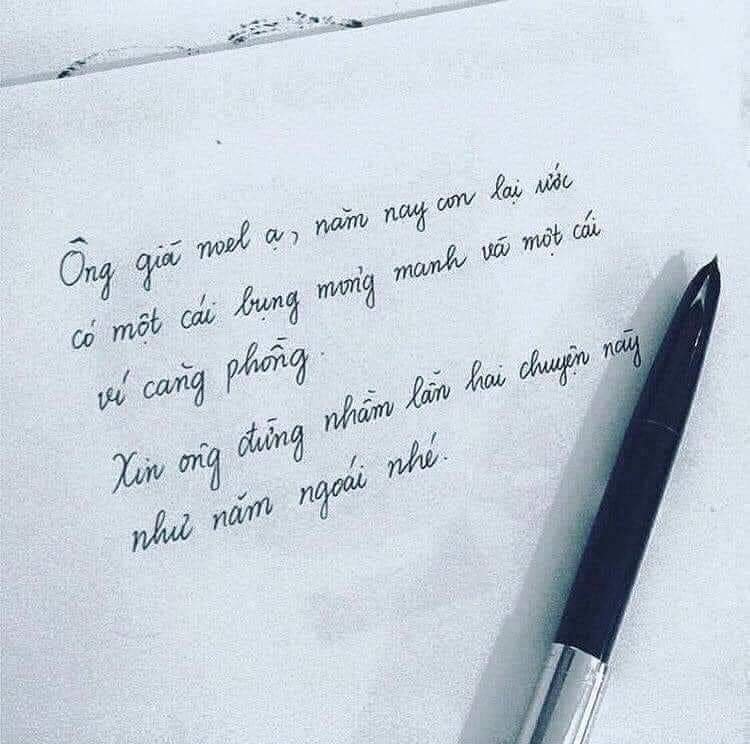 Ông già noel ạ, năm nay con lại ước
có một cái bụng mỏng manh và một cái
ví căng phồng.
Xin ông đừng nhầm lẫn hai chuyện này
như năm ngoái nhé.